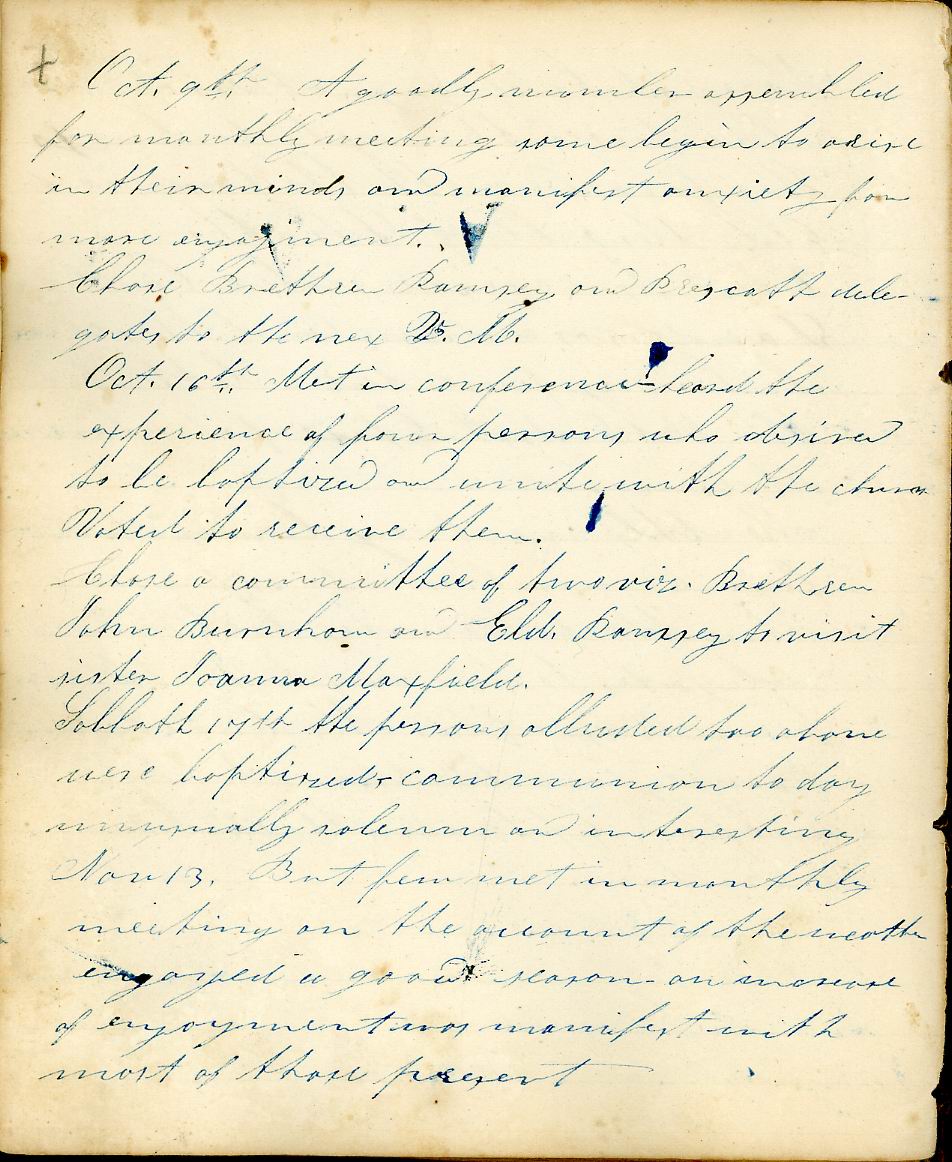 + Oct. 9th. A goodly number assembled
for monthly meeting some begin to arise
in their minds and manifest anxiety for
more enjoyment.
Chose Brethren Ramsey and Prescott dele-
gates to the nex Q. M.
Oct. 16th. Met in conference - heard the
experience of four persons who desired
to be baptized and unite with the church
Voted to receive them.
Chose a committee of two viz. Brethren
John Burnham and Eld. Ramsey to visit
sister Joanna Maxfield.
Sabbath 17th the persons alluded too above
were baptized, communion to day
unusually solemn and interesting
Nov 13. But few met in monthly
meeting on the account of the weather
enjoyed a good season - an increase
of enjoyment was manifest with
most of those present